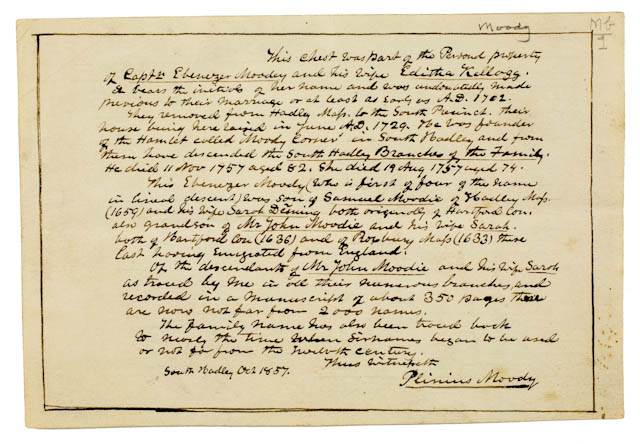 Moody
Mb
1
This Chest was part of the Personal property
of Captn Ebenezer Moodey and his wife Editha Kellogg.
& bears the initials of her name and was undoubtedly made
previous to their marriage or at least as Early as A.D. 1702.
They removed from Hadley Mass. to the South Precinct. their
house being here raised in June A.D. 1729. He was founder
of the Hamlet called Moody Corner in South Hadley and from
them have descended the South Hadley Branches of the Family.
He died 11 Nov 1757 aged 82. She died 19 Aug 1757 aged 74.
This Ebenezer Moody (Who is first of four of the name
in lineal descent) was son of Samuel Moodie of Hadley Mass.
(1659) and his wife Sarah Deming both originally of Hartford Con.
also grandson of Mr John Moodie and his wife Sarah.
both of Hartford Con (1636) and of Roxbury Mass (1633) these
last having emigrated from England.
Of the descendants of Mr John Moodie and his wife Sarah
as traced by me in all their numerous branches, and
recorded in a manuscript of about 350 pages there
are now not far from 2000 names.
The family name has also been traced back
to nearly the time when Sirnames began to be used
or not far from the twelvth century.
Thus Witnesseth
South Hadley Oct 1857.
Plinius Moody